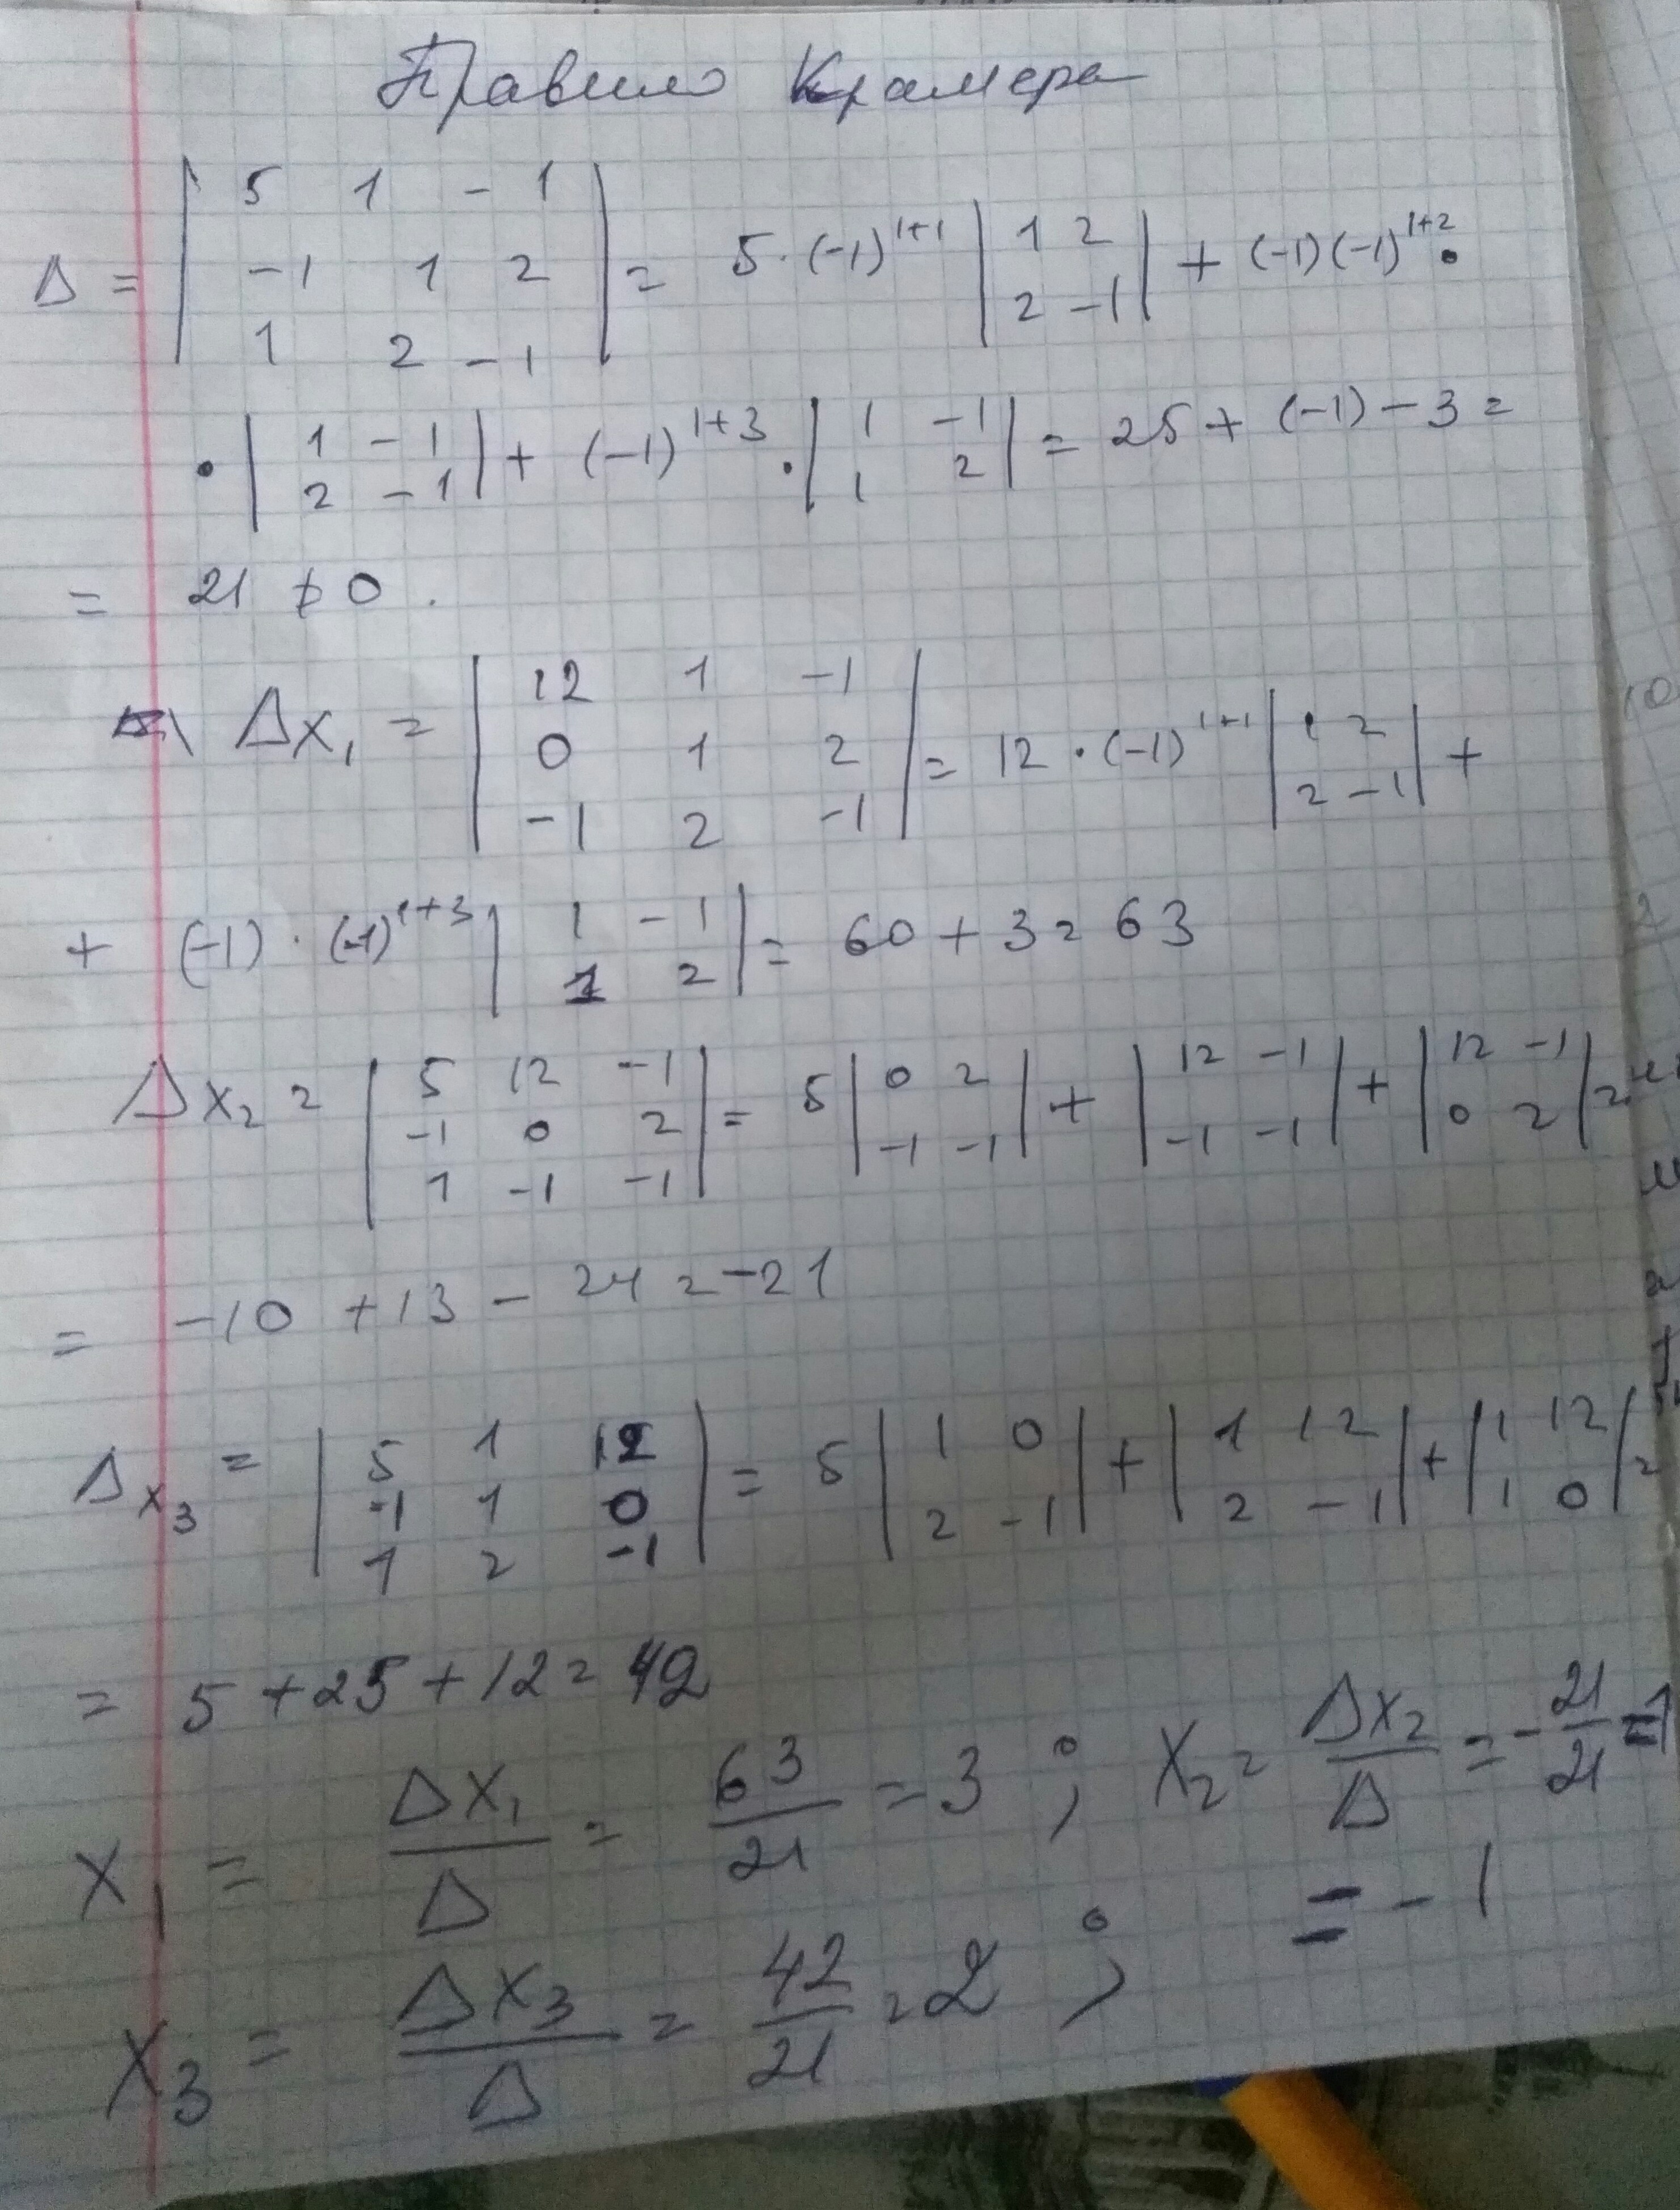 Правило Крамера
Δ = | 5 1 -1 |
| -1 1 2 | = 5·(-1)¹⁺¹ | 1 2 | + (-1)(-1)¹⁺² ·
| 1 2 -1 | | 2 -1 |
· | 1 -1 | + (-1)¹⁺³ · | 1 -1 | = 25 + (-1) - 3 =
| 2 -1 | | 1 2 |
= 21 ≠ 0 .
Δx₁ = | 12 1 -1 |
| 0 1 2 | = 12 · (-1)¹⁺¹ | 1 2 | +
| -1 2 -1 | | 2 -1 |
+ (-1) · (-1)¹⁺³ | 1 -1 | = 60 + 3 = 63
| 1 2 |
Δx₂ = | 5 12 -1 | = 5 | 0 2 | + | 12 -1 | + | 12 -1 | =
| -1 0 2 | | -1 -1 | | -1 -1 | | 0 2 |
| 1 -1 -1 |
= -10 + 13 - 24 = -21
Δx₃ = | 5 1 12 | = 5 | 1 0 | + | 1 12 | + | 1 12 | =
| -1 1 0 | | 2 -1 | | 2 -1 | | 1 0 |
| 1 2 -1 |
= 5 + 25 + 12 = 42
x₁ = Δx₁/Δ = 63/21 = 3 ; x₂ = Δx₂/Δ = -21/21 = 1
= -1
x₃ = Δx₃/Δ = 42/21 = 2 ;